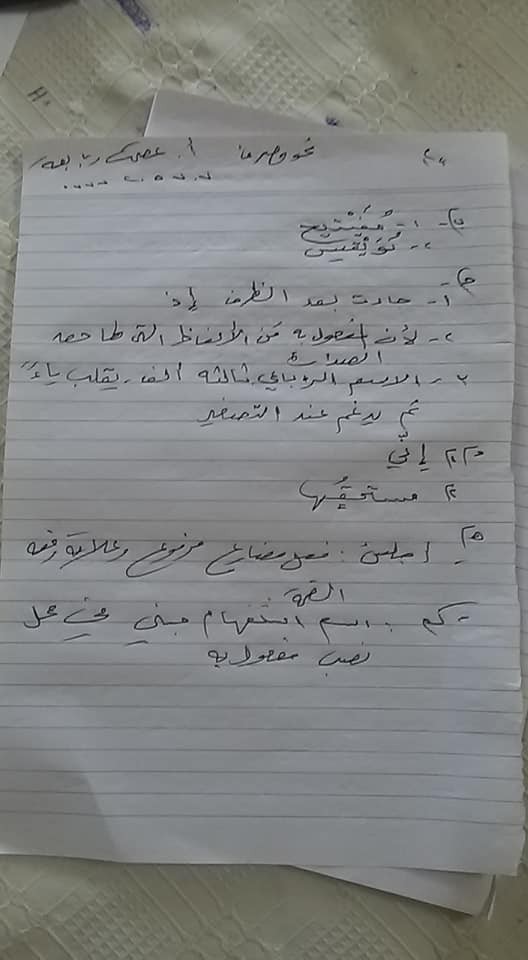 نحو وصرف أ.
ب- ١- مُفَيْتيح
٢- كُوَيْفيس
ج
أ- جاءت بعد الظرف إذ
٢- لأنه مفعول به من الألفاظ التي لها حق
الصدارة
٣- الاسم الرباعي ثالثه ألف، يقلب ياءً
ثم يدغم عند التصغير
د ١- إنّي
٢ مستحقُها
هـ اجلس: فعل مضارع مرفوع وعلامة رفعه
الضمة
- كم: اسم استفهام مبني في محل
نصب مفعول به